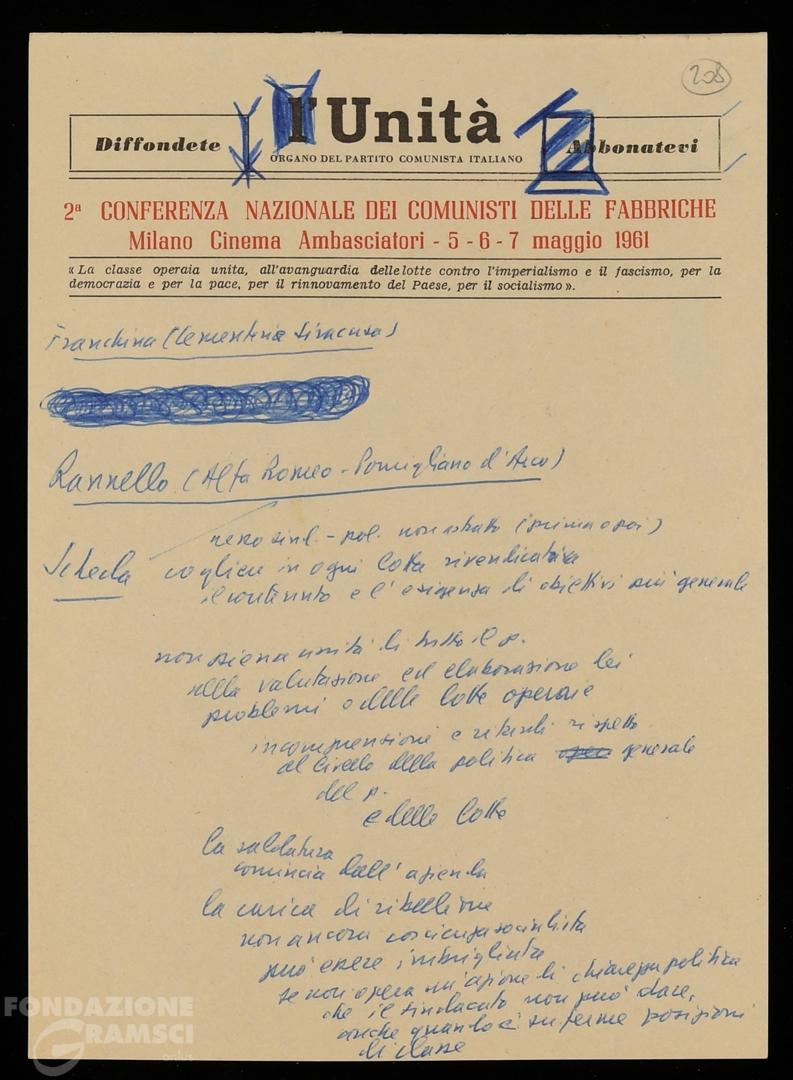 208
Diffondete
l'Unità
Abbonatevi
ORGANO DEL PARTITO COMUNISTA ITALIANO
2ª CONFERENZA NAZIONALE DEI COMUNISTI DELLE FABBRICHE
Milano Cinema Ambasciatori - 5 - 6 - 7 maggio 1961
« La classe operaia unita, all'avanguardia delle lotte contro l'imperialismo e il fascismo, per la
democrazia e per la pace, per il rinnovamento del Paese, per il socialismo ».
Franchina (Cementeria Siracusa)
Rannello (Alfa Romeo - Pomigliano d'Arco)
nesso sind. - pol. non astratto (prima o poi)
Scheda cogliere in ogni lotta rivendicativa
il contenuto e l'esigenza di obiettivi più generale
non piena unità di tutto il p.
nella valutazione ed elaborazione dei
problemi e delle lotte operaie
incomprensioni e ritardi rispetto
al livello della politica generale
del p.
e delle lotte
la saldatura
comincia dall'azienda
la carica di ribellione
non ancora coscienza socialista
può essere imbrigliata
se non opera un'azione di chiarezza politica
che il sindacato non può dare,
anche quando è su ferme posizioni
di classe
FONDAZIONE
GRAMSCI
onlus